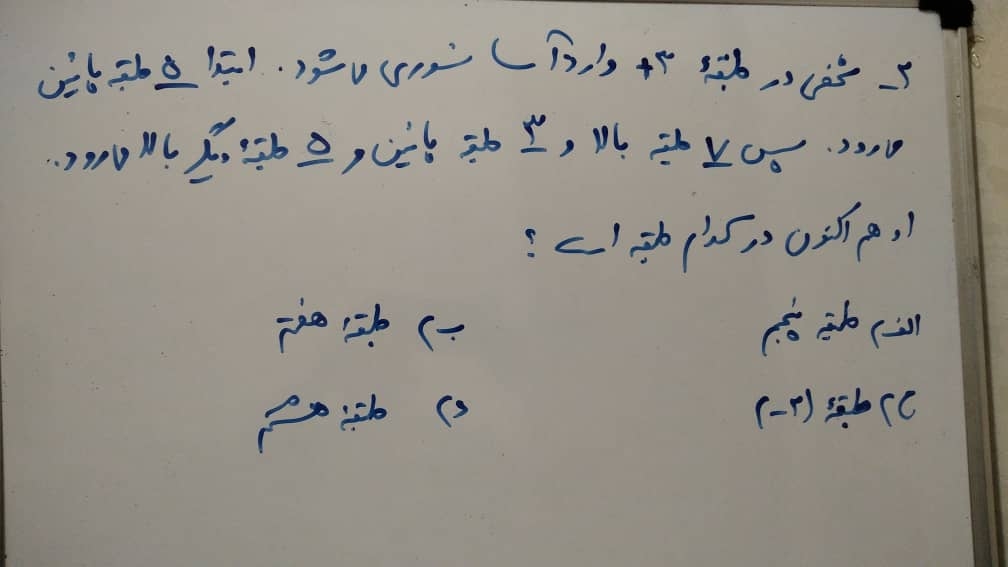 ۲- شخصی در طبقهٔ ۳+ وارد آسانسوری می‌شود. ابتدا ۵ طبقه پائین
می‌رود. سپس ۷ طبقه بالا و ۳ طبقه پائین و ۵ طبقهٔ دیگر بالا می‌رود.
او هم اکنون در کدام طبقه است؟
الف) طبقه پنجم ب) طبقهٔ هفتم
ج) طبقهٔ (۲-) د) طبقهٔ هشتم